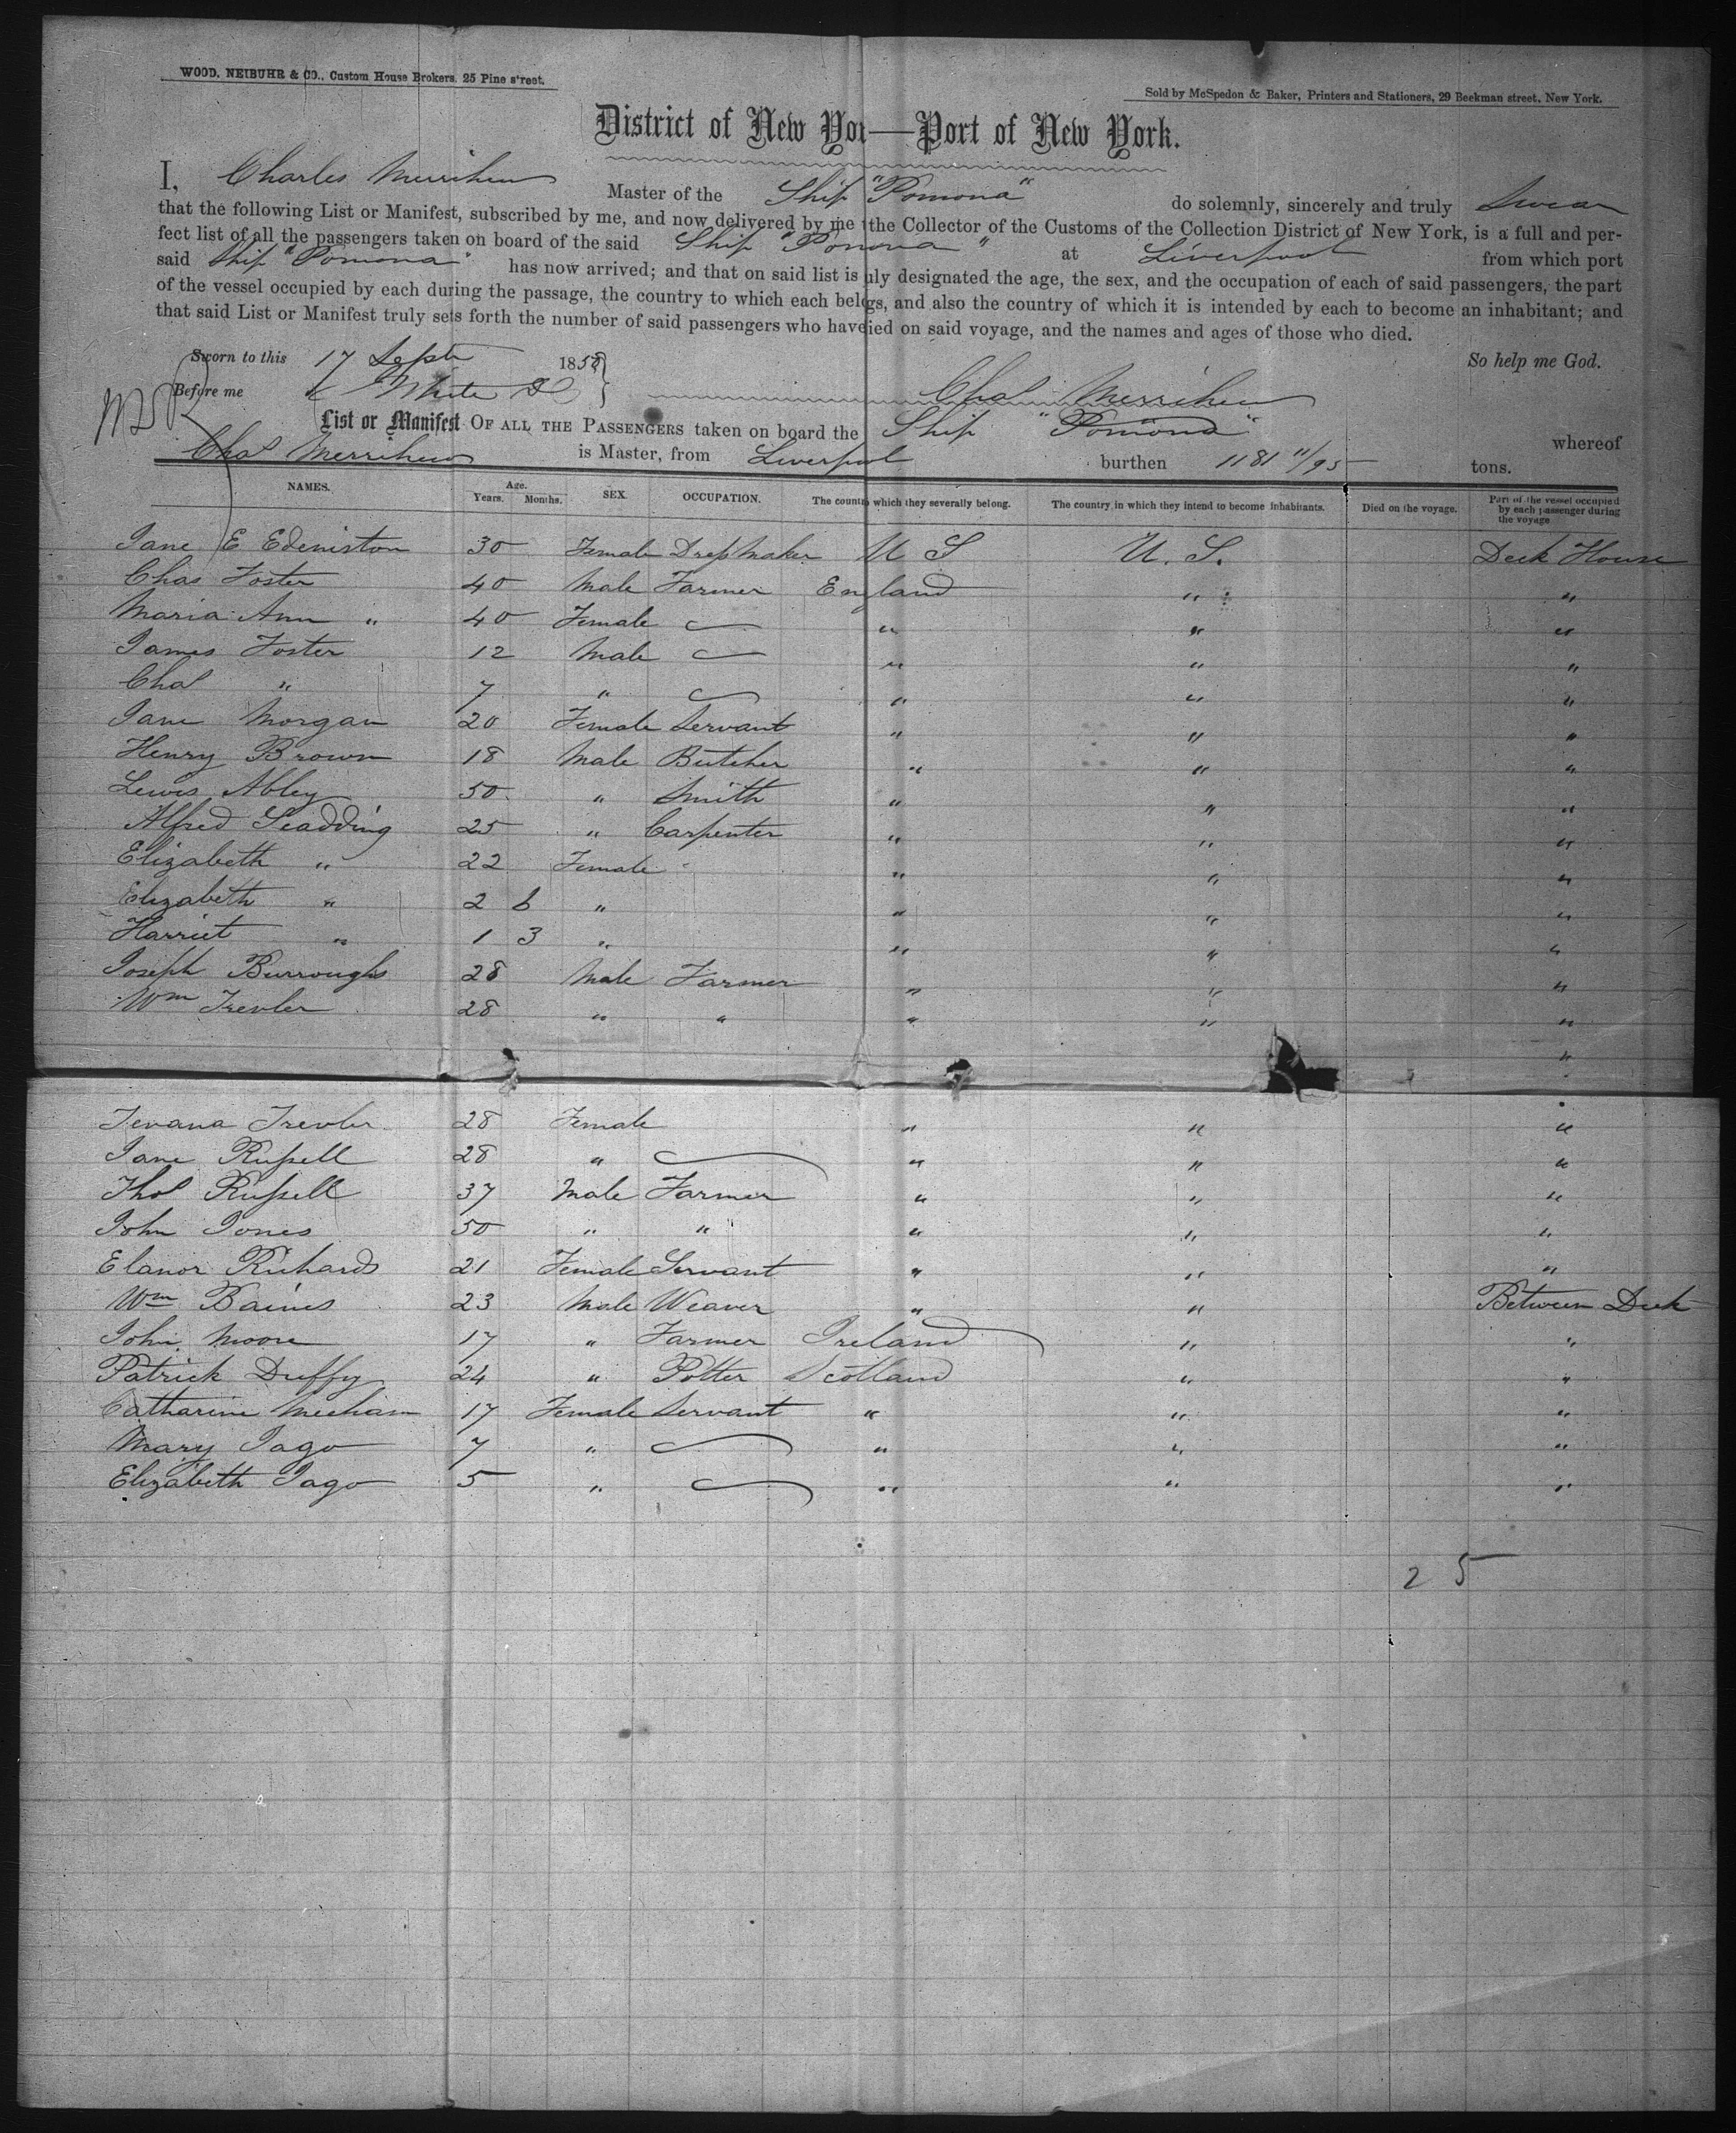 WOOD, NEIBUHR & CO., Custom House Brokers, 25 Pine street.
Sold by McSpedon & Baker, Printers and Stationers, 29 Beekman street, New York.
District of New Yor—Port of New York.
I, Charles Merrihew Master of the Ship "Pomona" do solemnly, sincerely and truly Swear
that the following List or Manifest, subscribed by me, and now delivered by me the Collector of the Customs of the Collection District of New York, is a full and per-
fect list of all the passengers taken on board of the said Ship "Pomona" at Liverpool from which port
said Ship "Pomona" has now arrived; and that on said list is uly designated the age, the sex, and the occupation of each of said passengers, the part
of the vessel occupied by each during the passage, the country to which each belogs, and also the country of which it is intended by each to become an inhabitant; and
that said List or Manifest truly sets forth the number of said passengers who have ied on said voyage, and the names and ages of those who died.
Sworn to this 17 Sept 1858 } So help me God.
Before me White Chas Merrihew
List or Manifest OF ALL THE PASSENGERS taken on board the Ship "Pomona" whereof
Chas Merrihew is Master, from Liverpool burthen 1181 11/95 tons.
NAMES. Age. Years. Months. SEX. OCCUPATION. The country which they severally belong. The country in which they intend to become inhabitants. Died on the voyage. Part of the vessel occupied by each passenger during the voyage
Jane E Edeniston 30 Female Dress Maker U S U. S. Deck House
Chas Foster 40 Male Farmer England " "
Maria Ann " 40 Female — " " "
James Foster 12 Male — " " "
Chas " 7 " — " " "
Jane Morgan 20 Female Servant " " "
Henry Brown 18 Male Butcher " " "
Lewis Abley 50 " Smith " " "
Alfred Seadding 25 " Carpenter " " "
Elizabeth " 22 Female " " "
Elizabeth " 2 6 " " " "
Harriet " 1 3 " " " "
Joseph Burroughs 28 Male Farmer " " "
Wm Trevler 28 " " " " "
"
Trevler 28 Female " " "
Jane Russell 28 " — " " "
Thos Russell 37 Male Farmer " " "
John Jones 50 " " " " "
Elanor Richards 21 Female Servant " " "
Wm Baines 23 Male Weaver " " Between Deck
John Moore 17 " Farmer Ireland " "
Patrick Duffy 24 " Potter Scotland " "
Catharine Meeham 17 Female Servant " " "
Mary Jago 7 " — " " "
Elizabeth Jago 5 " — " " "
25